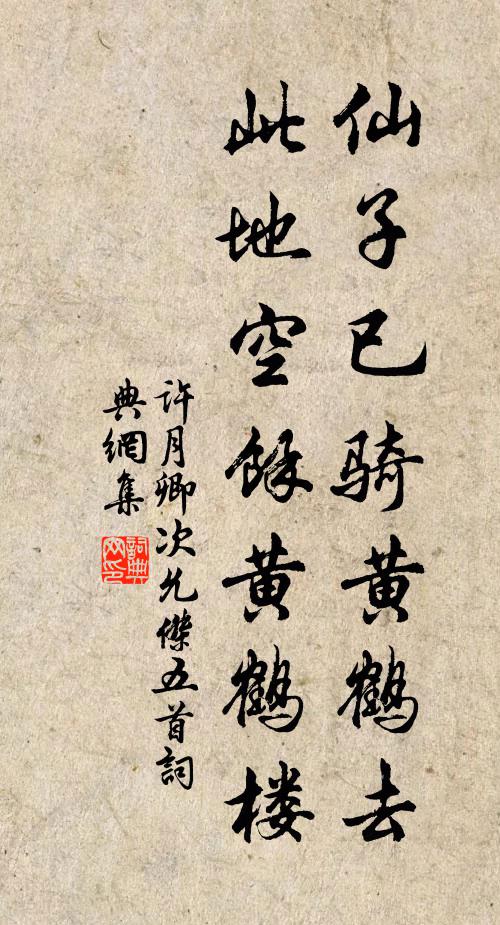 仙子已骑黄鹤去
此地空馀黄鹤楼
许月卿次允傑五首詞
典網集
詞典
网印